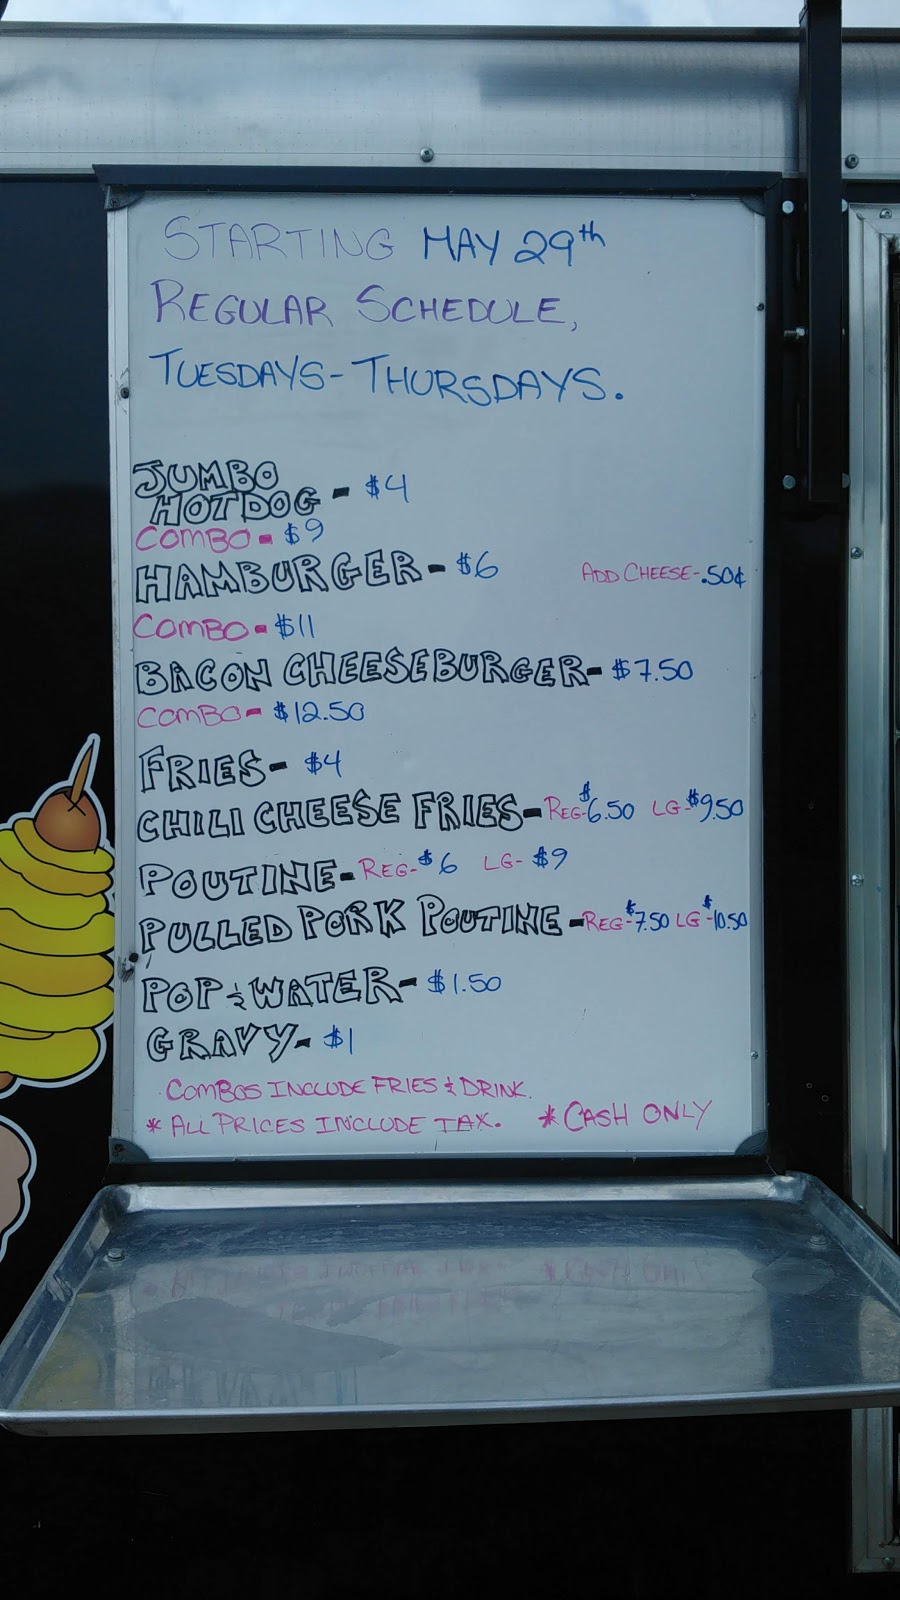 STARTING MAY 29th
REGULAR SCHEDULE,
TUESDAYS-THURSDAYS.
JUMBO
HOTDOG - $4
COMBO - $9
HAMBURGER - $6 ADD CHEESE - .50¢
COMBO - $11
BACON CHEESEBURGER - $7.50
COMBO - $12.50
FRIES - $4
CHILI CHEESE FRIES - REG-$6.50 LG-$9.50
POUTINE - REG-$6 LG-$9
PULLED PORK POUTINE - REG-$7.50 LG-$10.50
POP & WATER - $1.50
GRAVY - $1
COMBOS INCLUDE FRIES & DRINK.
* ALL PRICES INCLUDE TAX. * CASH ONLY